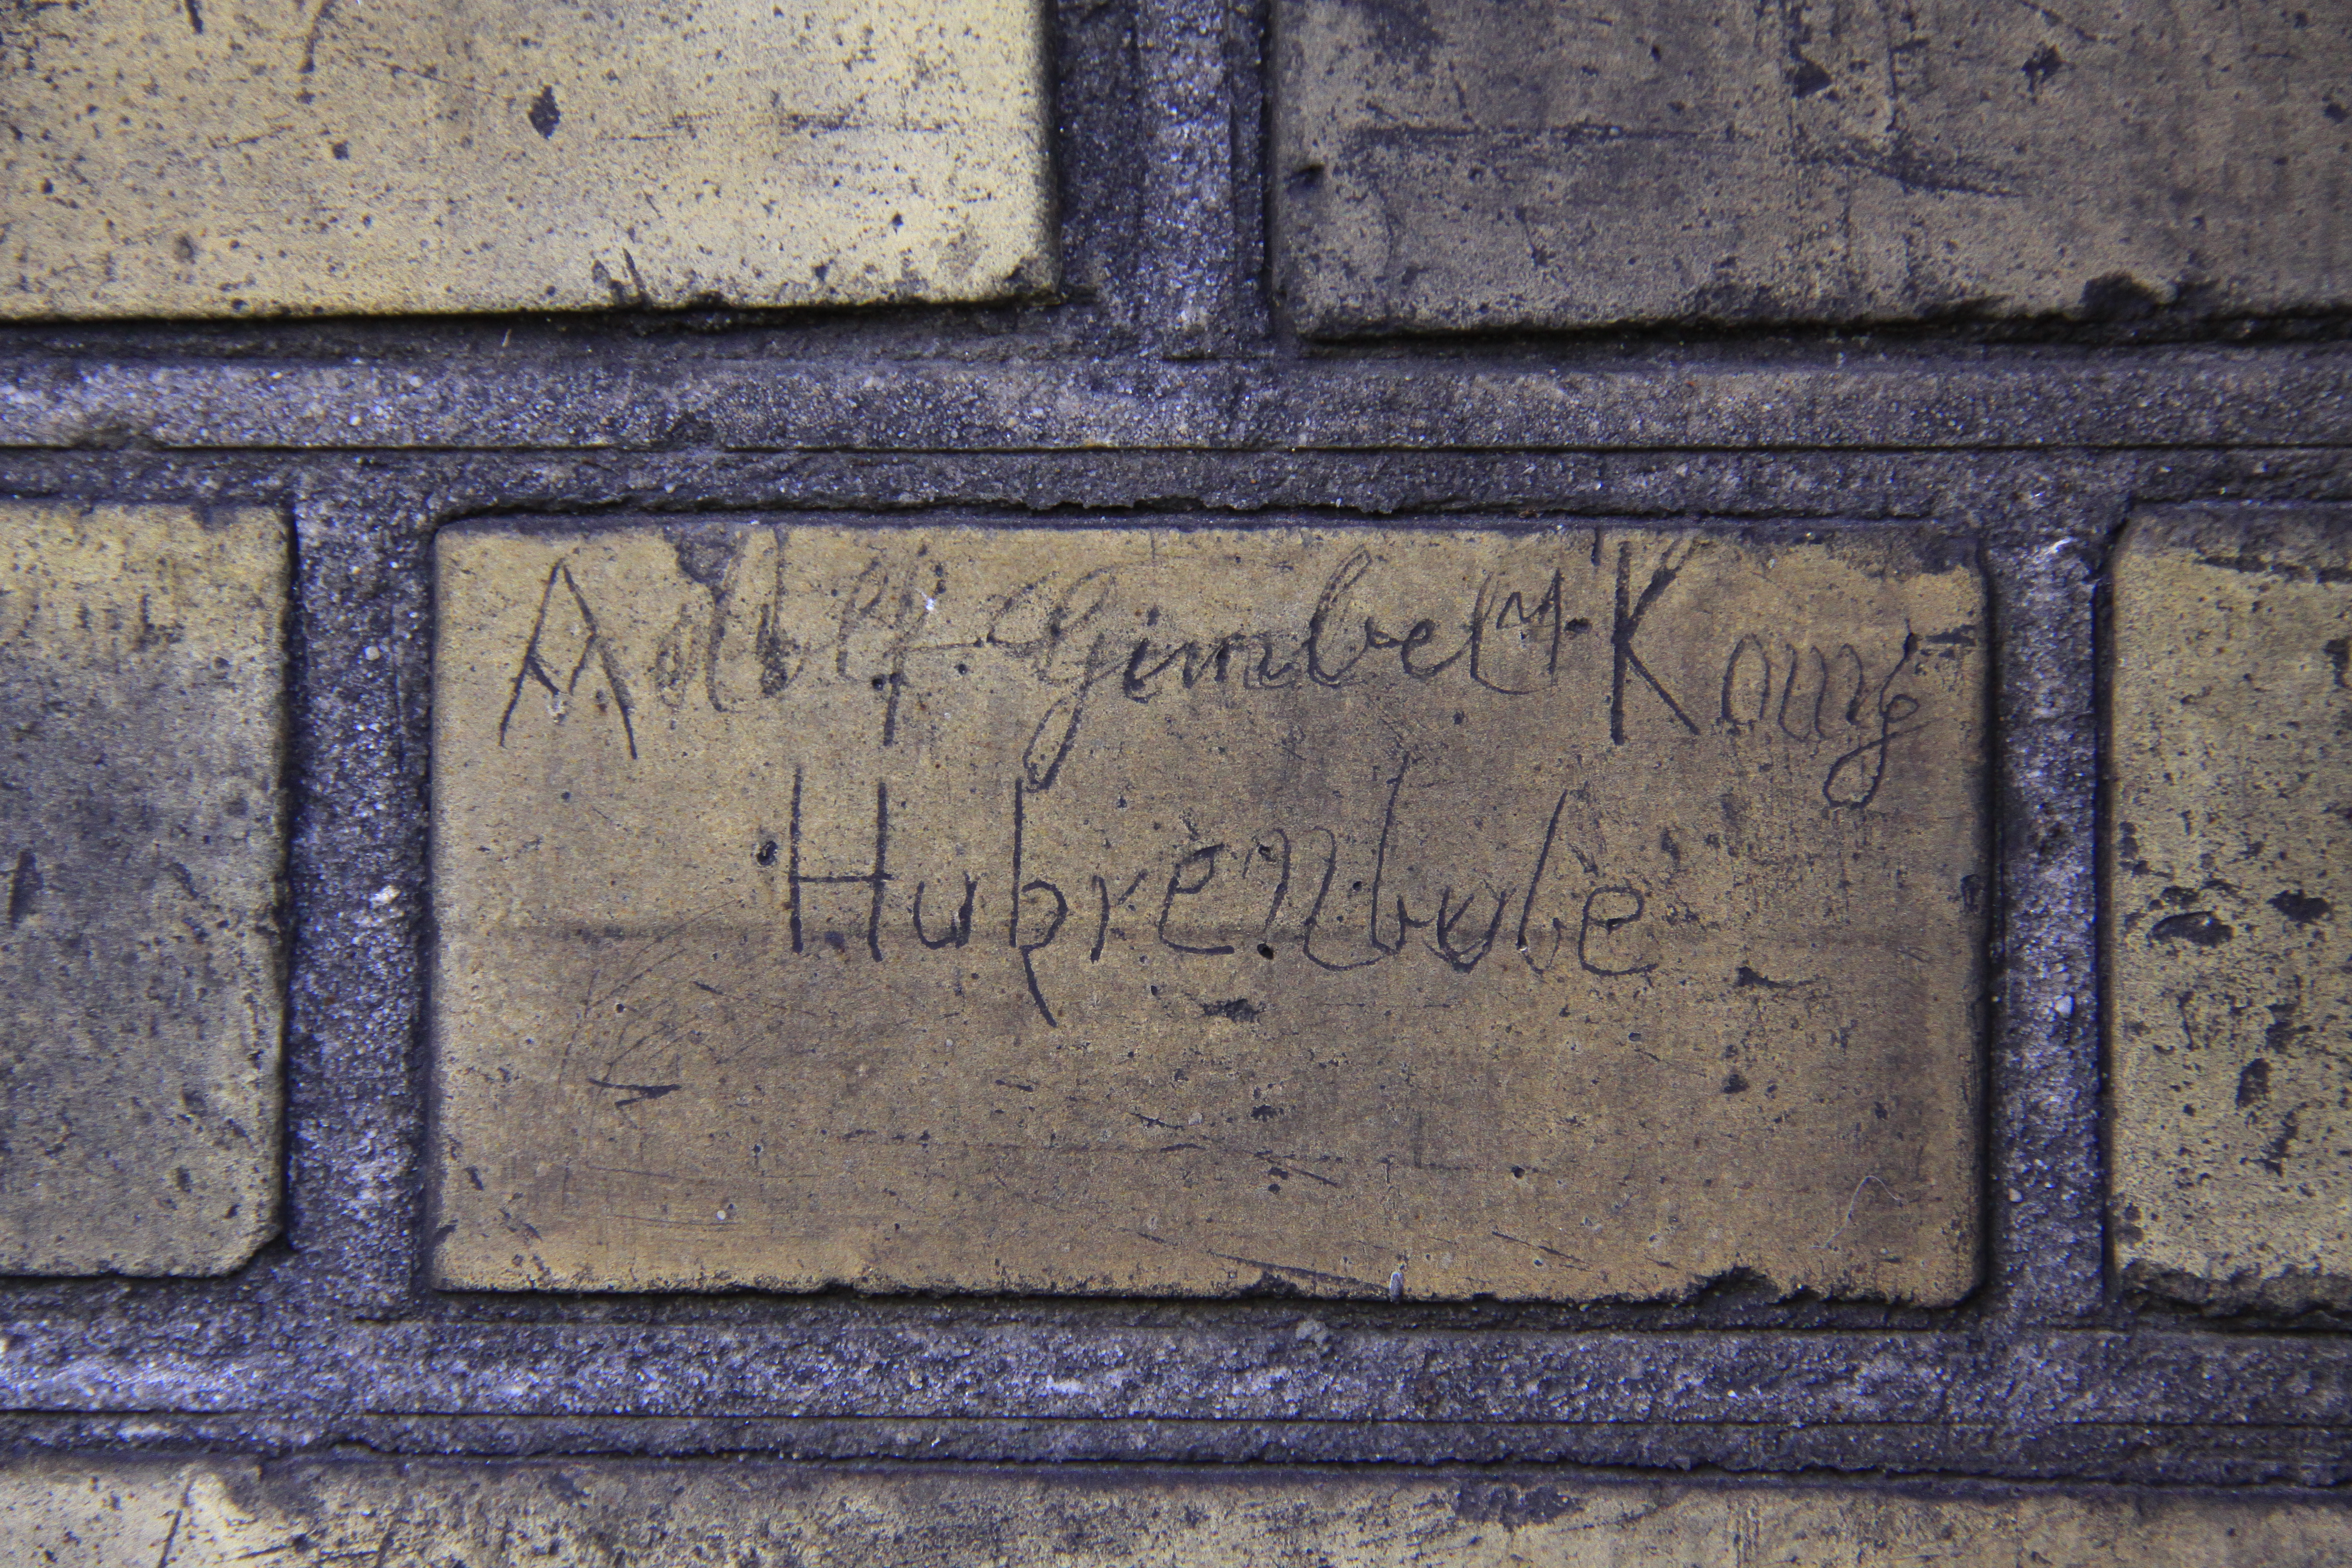 Adolf Gimbel M. König
Hubrenbube